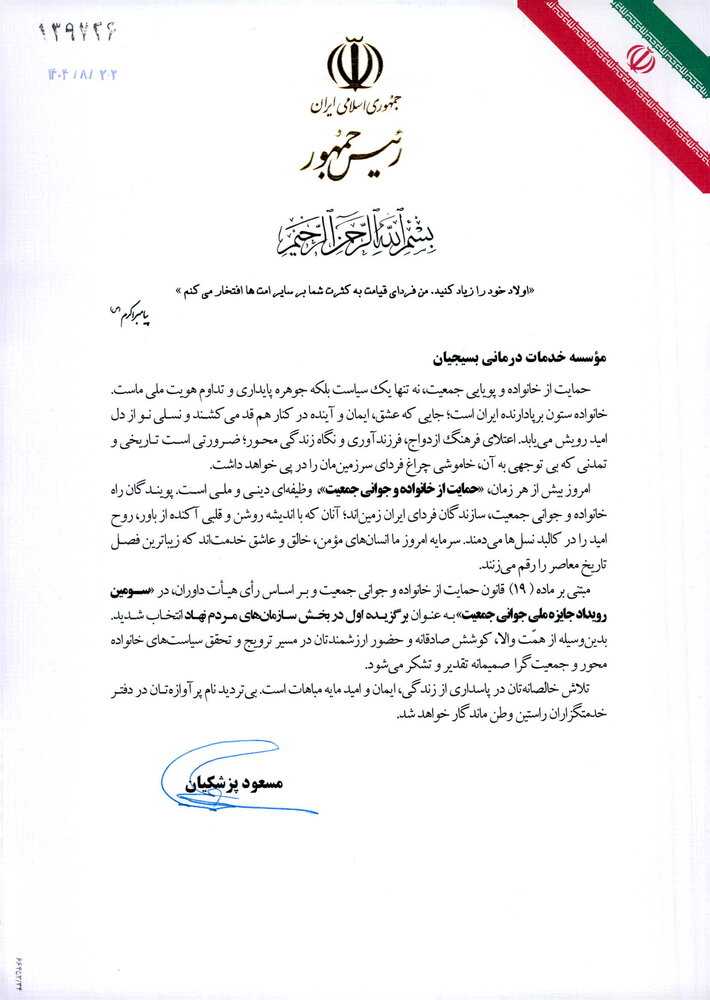 ۱۳۹۷۳۶
۱۴۰۴/۸/۲۰۲
جمهوری اسلامی ایران
رئیس جمهور
بسم الله الرحمن الرحیم
«اولاد خود را زیاد کنید، من فردای قیامت به کثرت شما بر سایر امت ها افتخار می کنم»
پیامبر اکرم (ص)
مؤسسه خدمات درمانی بسیجیان
حمایت از خانواده و پویایی جمعیت، نه تنها یک سیاست بلکه جوهره پایداری و تداوم هویت ملی ماست.
خانواده ستون برپادارنده ایران است؛ جایی که عشق، ایمان و آینده در کنار هم قد می کشند و نسلی نو از دل
امید رویش می‌یابد. اعتلای فرهنگ ازدواج، فرزندآوری و نگاه زندگی محور؛ ضرورتی است تاریخی و
تمدنی که بی توجهی به آن، خاموشی چراغ فردای سرزمین‌مان را در پی خواهد داشت.
امروز بیش از هر زمان، «حمایت از خانواده و جوانی جمعیت»، وظیفه‌ای دینی و ملی است. پویندگان راه
خانواده و جوانی جمعیت، سازندگان فردای ایران زمین‌اند؛ آنان که با اندیشه روشن و قلبی آکنده از باور، روح
امید را در کالبد نسل‌ها می‌دمند. سرمایه امروز ما انسان‌های مؤمن، خالق و عاشق خدمت‌اند که زیباترین فصل
تاریخ معاصر را رقم می‌زنند.
مبتنی بر ماده (۱۹) قانون حمایت از خانواده و جوانی جمعیت و بر اساس رأی هیأت داوران، در «سومین
رویداد جایزه ملی جوانی جمعیت» به عنوان برگزیده اول در بخش سازمان‌های مردم نهاد انتخاب شدید.
بدین‌وسیله از همّت والا، کوشش صادقانه و حضور ارزشمندتان در مسیر ترویج و تحقق سیاست‌های خانواده
محور و جمعیت‌گرا صمیمانه تقدیر و تشکر می‌شود.
تلاش خالصانه‌تان در پاسداری از زندگی، ایمان و امید مایه مباهات است. بی‌تردید نام پرآوازه‌تان در دفتر
خدمتگزاران راستین وطن ماندگار خواهد شد.
مسعود پزشکیان